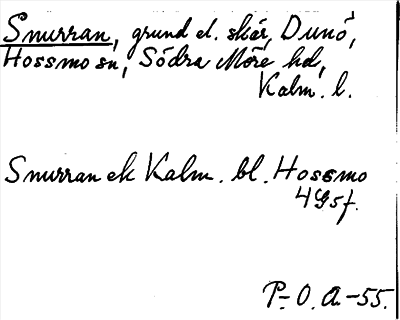 Snurran, grund el. skär, Dunö,
Hossmo sn, Södra Möre hd,
Kalm. l.
Snurran ek Kalm. bl. Hossmo
4G5f.
P.-O. A.-55.